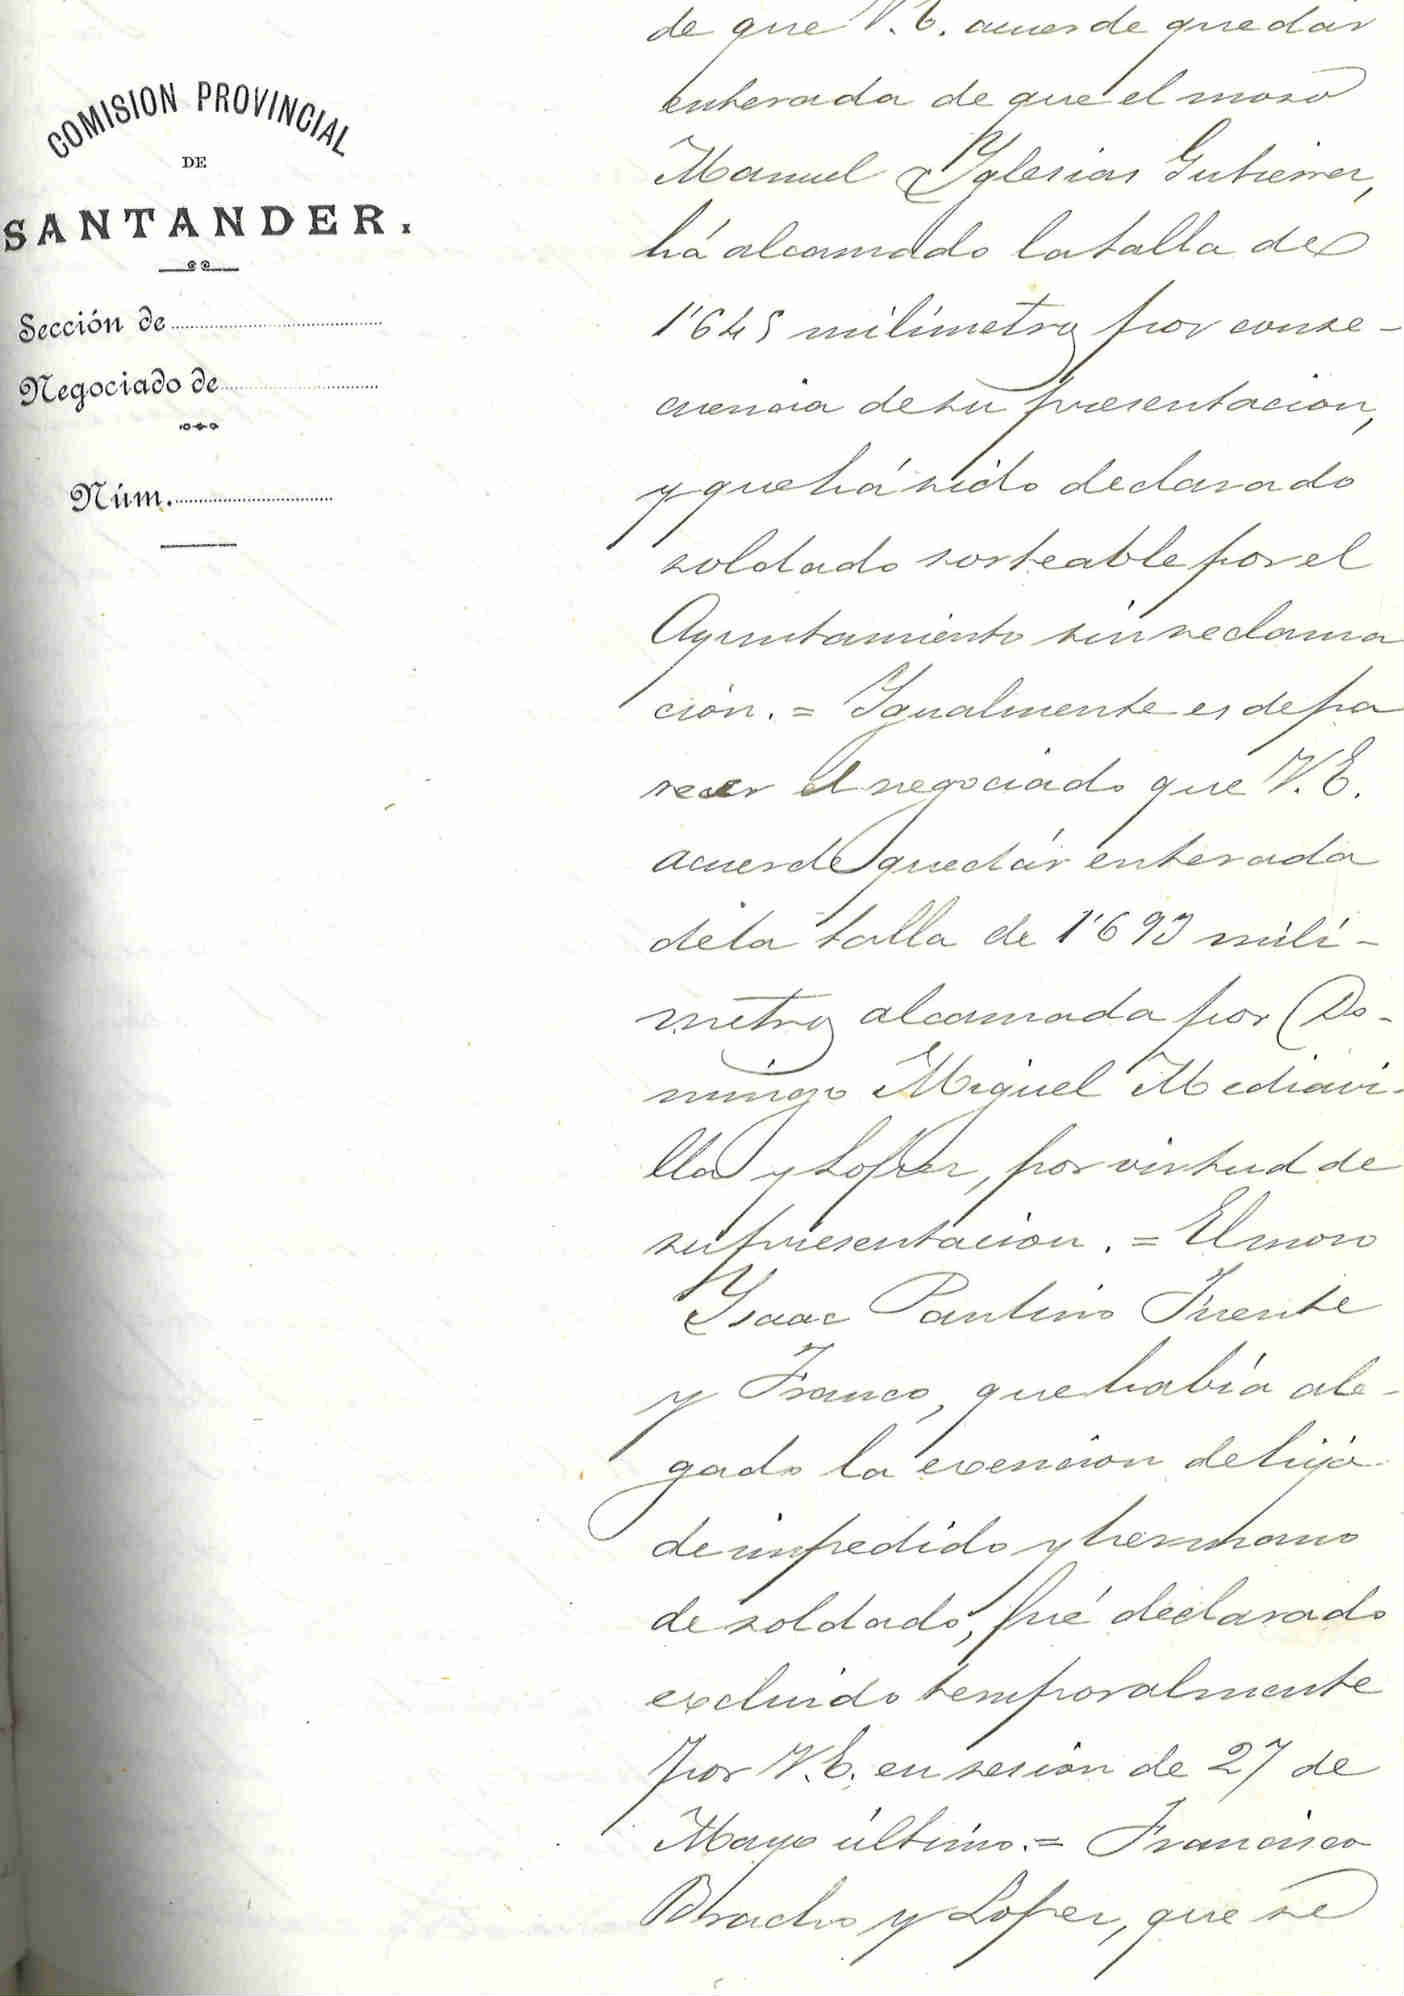 COMISION PROVINCIAL
DE
SANTANDER.
Sección de
Negociado de
Núm.
de que V. E. acuerde quedár
enterada de que el mozo
Manuel Yglesias Gutierrez,
há alcanzado la talla de
1'645 milimetros por conse-
cuencia de su presentacion,
y que há sido declarado
soldado sorteable por el
Ayuntamiento sin reclama
ción. = Ygualmente es de pa
recer el negociado que V. E.
acuerde quedár enterada
de la talla de 1'693 milí-
metros alcanzada por Do-
mingo Miguel Mediavi-
lla y Lopez, por virtud de
su presentacion. = El mozo
Ysaac Paulino Fuente
y Franco, que había ale-
gado la exencion de hijo
de impedido y hermano
de soldado, fué declarado
excluido temporalmente
por V. E. en sesión de 27 de
Mayo último. = Francisco
Bracho y Lopez, que se